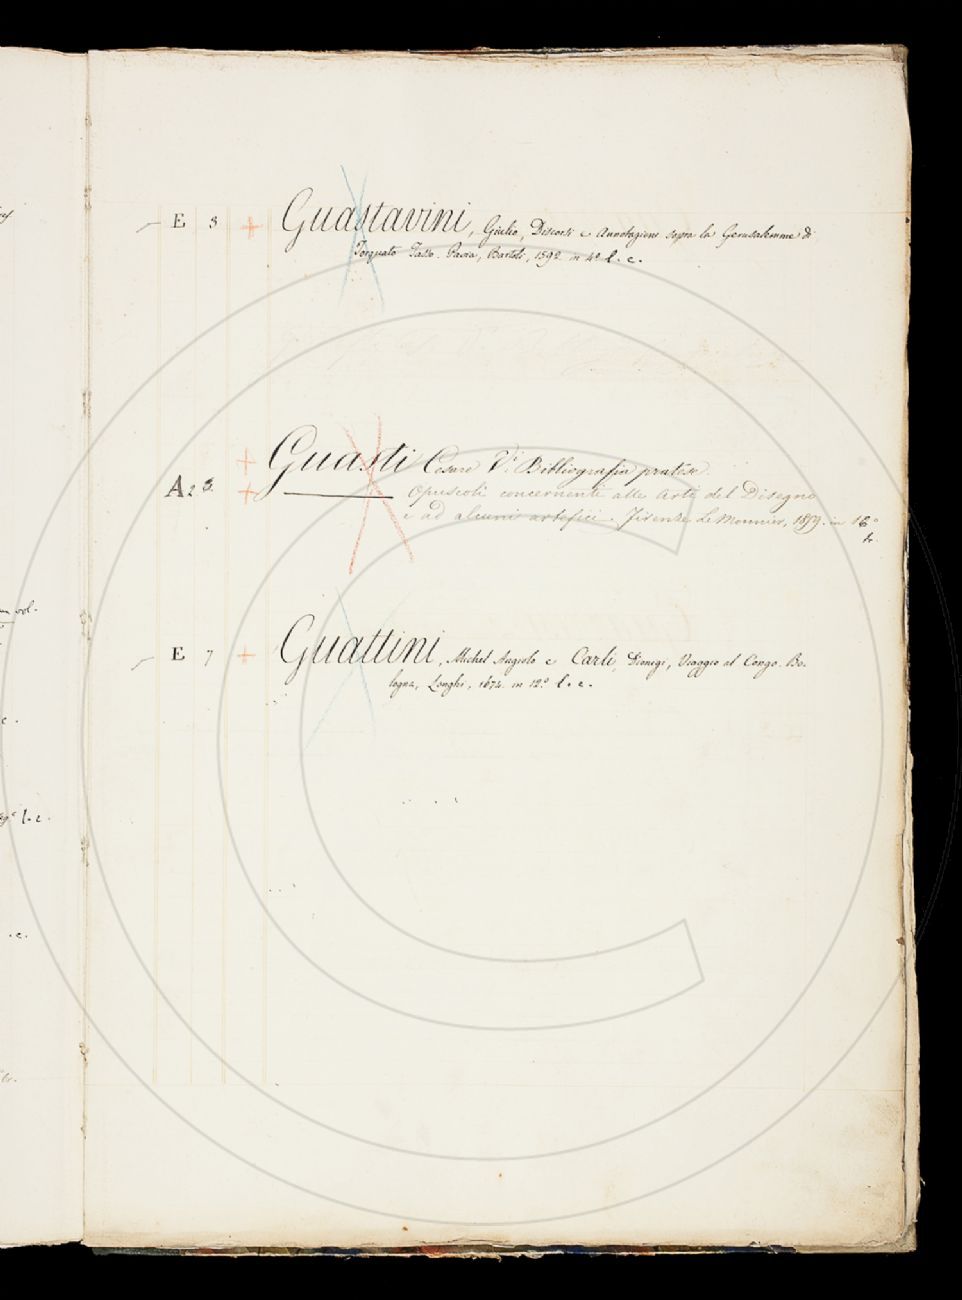 E 3 + Guastavini, Giulio, Discorsi e Annotazioni sopra la Gerusalemme di
Torquato Tasso. Pavia, Bartoli, 1592. in 4.º l. c.
+ Guasti Cesare V. Bibliografia pratese
A 2 3. + Opuscoli concernenti alle Arti del Disegno
e ad alcuni artefici. Firenze Le Monnier, 18 . in 16º
br.
E 7 + Guattini, Michel Angiolo e Carli, Dionigi, Viaggio al Congo. Bo-
logna, Longhi, 1674. in 12.º l. c.
vol.
l. c.